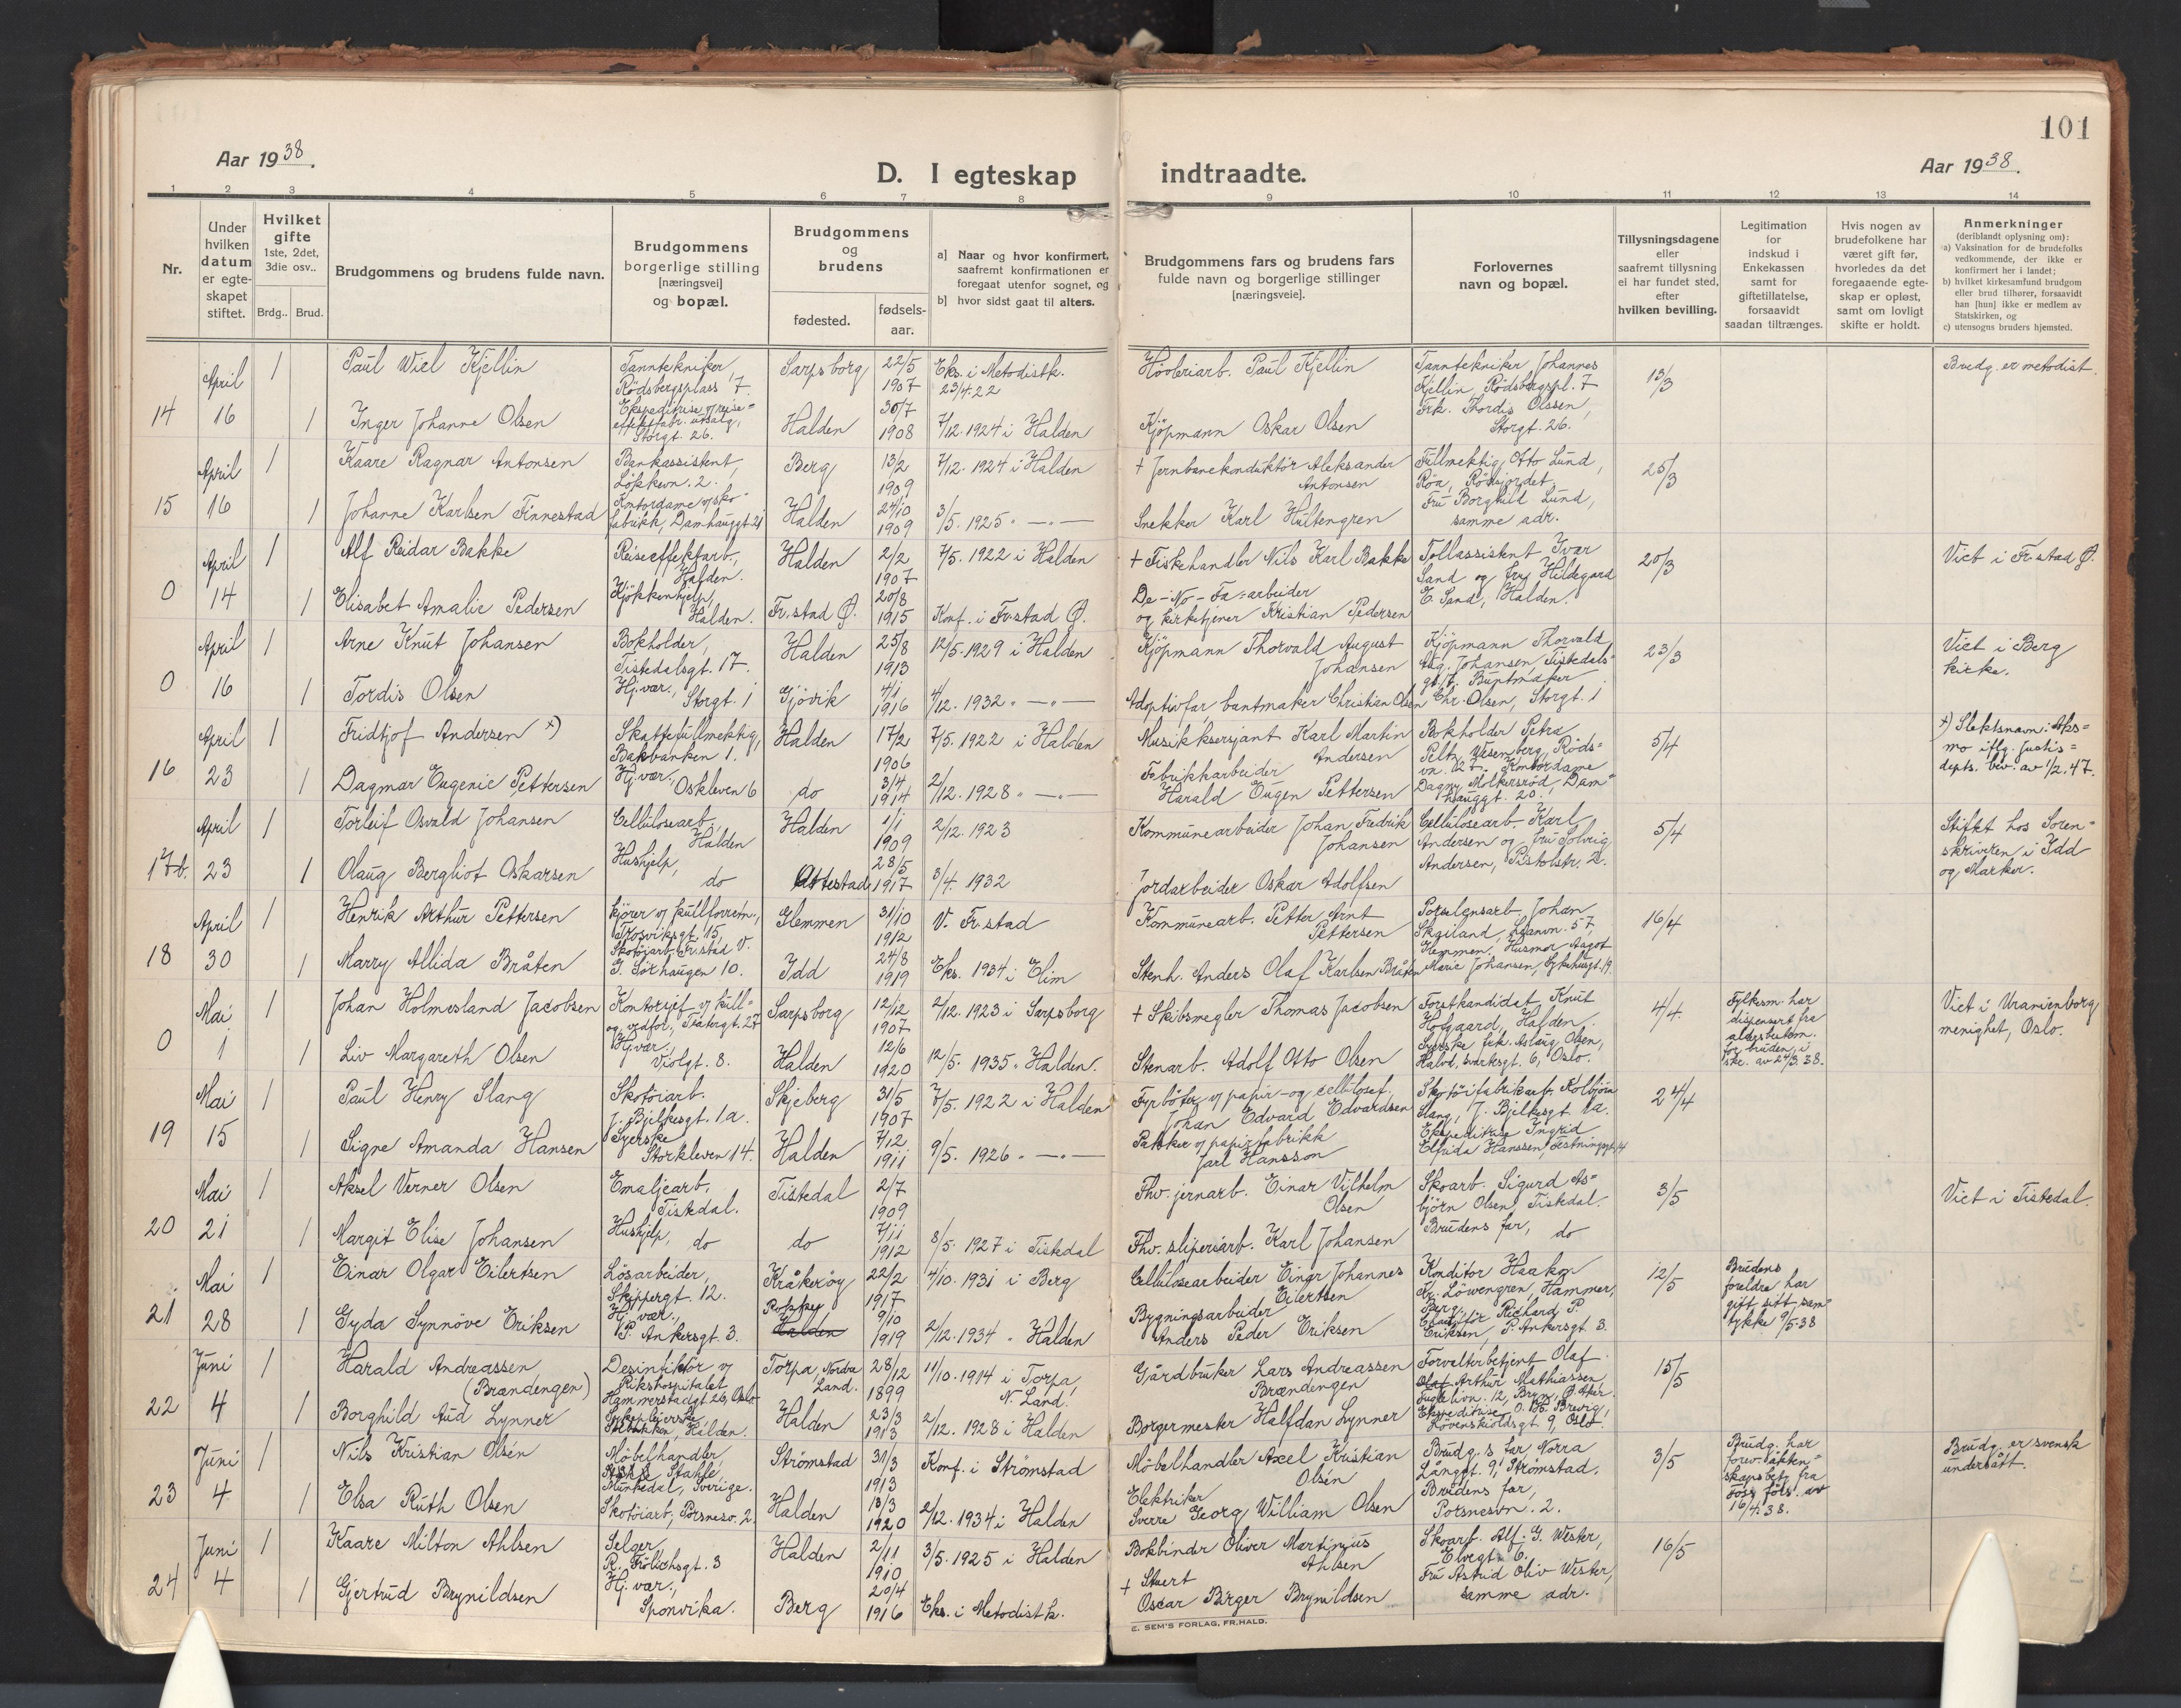 101
Aar 1938.
D. I egteskap indtraadte.
Aar 1938.
1 2 3 4 5 6 7 8 9 10 11 12 13 14
Nr.
Under hvilken datum er egteskapet stiftet.
Hvilket gifte 1ste, 2det, 3die osv..
Brdg.. Brud.
Brudgommens og brudens fulde navn.
Brudgommens borgerlige stilling [næringsvei] og bopæl.
Brudgommens og brudens
fødested.
fødsels-aar.
a] Naar og hvor konfirmert, saafremt konfirmationen er foregaat utenfor sognet, og
b] hvor sidst gaat til alters.
Brudgommens fars og brudens fars fulde navn og borgerlige stillinger [næringsveie].
Forlovernes navn og bopæl.
Tillysningsdagene eller saafremt tillysning ei har fundet sted, efter hvilken bevilling.
Legitimation for indskud i Enkekassen samt for giftetillatelse, forsaavidt saadan tiltrænges.
Hvis nogen av brudefolkene har været gift før, hvorledes da det foregaaende egteskap er opløst, samt om lovligt skifte er holdt.
Anmerkninger (deriblandt oplysning om):
a) Vaksination for de brudefolks vedkommende, der ikke er konfirmert her i landet;
b) hvilket kirkesamfund brudgom eller brud tilhører, forsaavidt han [hun] ikke er medlem av Statskirken, og
c) utensogns bruders hjemsted.
April 1 Paul Wiel Kjellin Tanntekniker, Rödsbergsplass 7. Sarpsborg 22/5 1907 Eks. i Metodistk. 23/4.22 Hövleriarb. Paul Kjellin Tanntekniker Johannes Kjellin, Rödsbergspl. 7 13/3 Brudg. er metodist.
14 16 1 Inger Johanne Olsen Ekspeditrise v/ reiseeffektfabr. utsalg, Storgt. 26. Halden 30/7 1908 7/12. 1924 i Halden Kjöpmann Oskar Olsen Frk. Thordis Olssen, Storgt. 26.
April 1 Kaare Ragnar Antonsen Bankassistent, Lökkevn. 2. Berg 13/2 1909 7/12. 1924 i Halden + Jernbanekonduktör Aleksander Antonsen Fullmektig Otto Lund, Röa, Rödsjordet. 25/3
15 16 1 Johanne Karlsen Finnestad Kontordame v/ skofabrikk, Damhauggt. 21 Halden 24/10 1909 3/5. 1925 " — " — Snekker Karl Hultengren Fru Borghild Lund, samme adr.
April 1 Alf Reidar Bakke Reiseeffektarb., Halden. Halden 2/2 1907 7/5. 1922 i Halden + Fiskehandler Nils Karl Bakke Tollassistent Ivar Sand og fru Hildegard E. Sand, Halden. 20/3 Viet i Fr.stad Ø.
0 14 1 Elisabet Amalie Pedersen Kjökkenhjelp, Halden. Fr.stad Ø. 20/8 1915 Konf. i Fr.stad Ø. De-No-Fa-arbeider og kirketjener Kristian Pedersen
April 1 Arne Knut Johansen Bokholder, Tistedalsgt. 17. Halden 25/8 1913 12/5. 1929 i Halden Kjöpmann Thorvald August Johansen Kjöpmann Thorvald Aug. Johansen, Tistedalsgt. 17. Buntmaker 23/3 Viet i Berg kirke.
0 16 1 Tordis Olsen Hj.vær., Storgt. 1 Gjövik 4/1 1916 4/12. 1932 " — " — Adoptivfar, buntmaker Christian Olsen Chr. Olsen, Storgt. 1
April 1 Fridtjof Andersen x) Skattefullmektig, Bakbanken 1. Halden 17/2 1906 7/5. 1922 i Halden Musikksersjant Karl Martin Andersen Bokholder Petra Wesenberg, Rödsvn. 5/4 x) Slektsnavn: iflg. justisdepts. bev. av 1/2.47.
16 23 1 Dagmar Eugenie Pettersen Hj.vær., Oskleven 6 do 3/4 1914 2/12. 1928 " — " — Fabrikkarbeider Harald Eugen Pettersen Kontordame Dagny Molkersröd, Damhauggt. 20.
April 1 Torleif Osvald Johansen Cellulosearb., Halden Halden 1/1 1909 2/12. 1923 Kommunearbeider Johan Fredrik Johansen Cellulosearb. Karl Andersen og fru Solveig Andersen, Pistolstr. 2. 5/4 Stiftet hos Sorenskriveren i Idd og Marker.
17b. 23 1 Olaug Bergliot Oskarsen Hushjelp, do 28/5 1917 3/4. 1932 Jordarbeider Oskar Adolfsen
April 1 Henrik Arthur Pettersen Kjörer v/ kullforretn., Trosviksgt. 15, Fr.stad V. Glemmen 31/10 1912 V. Fr.stad Kommunearb. Petter Arnt Pettersen Porselensarb. Johan Skeiland, 57, Glemmen. 16/4
18 30 1 Marry Allida Bråten Skotöiarb. G. Sörhaugen 10. Idd 24/8 1919 Eks. 1934 i Elim Stenh. Anders Olaf Karlsen Bråten Husmor Aagot Marie Johansen, Sykehusgt. 19.
Mai 1 Johan Holmesland Jacobsen Kontorsjef v/ kull- og vedfor., Teatergt. 27 Sarpsborg 12/12 1907 2/12. 1923 i Sarpsborg + Skibsmegler Thomas Jacobsen Forstkandidat Knut Hofgaard, Halden. 4/4. Fylkesm. har dispensert fra aldersbestem. for bruden i skr. av 24/3.38. Viet i Uranienborg menighet, Oslo.
0 1 1 Liv Margareth Olsen Hj.vær. Violgt. 8. Halden 12/6 1920 12/5. 1935 " Halden. Stenarb. Adolf Otto Olsen Syerske frk. Aslaug Olsen, Halvd. Svartesgt. 6, Oslo.
Mai 1 Paul Henry Slang Skotöiarb. J. Bjelkesgt. 1a. Skjeberg 31/5 1907 7/5. 1922 i Halden Fyrböter v/ papir- og cellulosef. Johan Edvard Edvardsen Skotöifabrikarb. Kolbjörn Slang, J. Bjelkesgt. 1a. 24/4
19 15 1 Signe Amanda Hansen Syerske Storkleven 14. Halden 7/12 1911 9/5. 1926 " — " — Pakker v/ papirfabrikk Jarl Hansson Ekspeditrise Ingrid Elfrida Hanssen, Festningsgt. 14
Mai 1 Aksel Verner Olsen Emaljearb., Tistedal. Tistedal 2/7 1909 Fhv. jernarb. Einar Vilhelm Olsen Skoarb. Sigurd Asbjörn Olsen, Tistedal. 3/5 Viet i Tistedal.
20 21 1 Margit Elise Johansen Hushjelp, do do 7/11 1912 8/5. 1927 i Tistedal Fhv. sliperiarb. Karl Johansen Brudens far, do
Mai 1 Einar Olgar Eilertsen Lösarbeider, Skippergt. 12. Kråkeröy 22/2 1917 4/10. 1931 i Berg Cellulosearbeider Einar Johannes Eilertsen Konditor Haakon Kr. Löwengren, Hammer, Berg. 12/5 Brudens foreldre har gitt sitt samtykke 9/5.38
21 28 1 Gyda Synnöve Eriksen Hj.vær., P. Ankersgt. 3. Rokke Halden 9/10 1919 2/12. 1934 " Halden Bygningsarbeider Anders Peder Eriksen Chaufför Richard P. Eriksen, P. Ankersgt. 3.
Juni 1 Harald Andreassen (Brændengen) Desinfektör v/ Rikshospitalet, Hammerstadgt. 26, Oslo Torpa, Nordre Land. 28/12 1899 11/10. 1914 i Torpa, N. Land. Gårdbruker Lars Andreassen Brændengen Forvalterbetjent Olaf Olaf Arthur Mathiassen, Fuglelivn. 12, Bryn, Ö. Aker. 15/5
22 4 1 Borghild Aud Lynner Sykepleierske, Halden. Halden 23/3 1913 2/12. 1928 i Halden Borgermester Halfdan Lynner Ekspeditrise Brevig, Lövenskioldsgt. 9, Oslo
Juni 1 Nils Kristian Olsén Möbelhandler, Stahle, Munkedal, Sverige. Strömstad 31/3 1913 Konf. i Strömstad Möbelhandler Axel Kristian Olsén Brudg.s far, Norra Långgt. 9, Strömstad. 3/5 Brudg. har forev. äktenskapsbetg. fra Foss förs. av 16/4.38. Brudg. er svensk undersått.
23 4 1 Elsa Ruth Olsen Skotöiarb., Porsnesv. 2. Halden 13/3 1920 2/12. 1934 i Halden Elektriker Sverre Georg William Olsen Brudens far, Porsnesvn. 2.
Juni 1 Kaare Milton Ahlsen Selger R. Frölichsgt. 3 Halden 2/11 1910 3/5. 1925 i Halden Bokbinder Oliver Martinius Ahlsen Skoarb. Alf G. Wester, Elvegt. 6. 16/5
24 4 1 Gjertrud Brynildsen Hj.vær., Sponvika. Berg 20/4 1916 Eks. i Metodistk. + Stuert Oscar Birger Brynildsen Fru Astrid Oliv Wester, samme adr.
E. SEM'S FORLAG, FR.HALD.